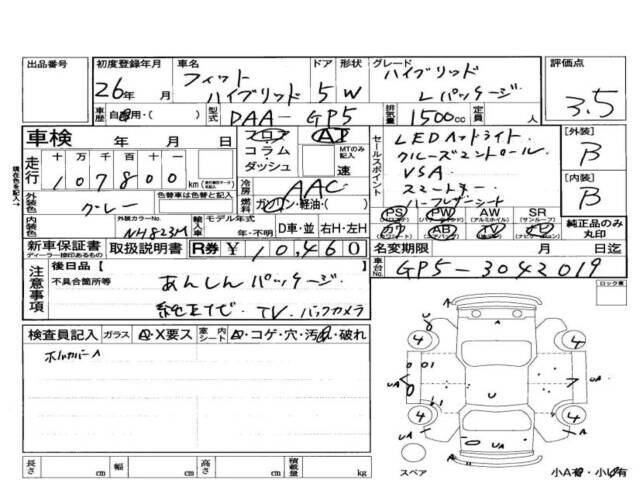 出品番号 初度登録年月 車名 ドア 形状 グレード 評価点
26年 月 フィット ハイブリッド 5 W ハイブリッド Lパッケージ 3.5
車歴 自家用・( ) 型式 DAA-GP5 排気量 1500cc 定員 人
車検 年 月 日 フロア・コラム・ダッシュ A MTのみ記入 速
走行 十 万 千 百 十 107800 km
冷房 AAC
セールスポイント
LEDヘッドライト.
クルーズコントロール
VSA
スマートキー
ハーフレザーシート
[外装] B
[内装] B
外装色 グレー 色替車は色替と記入 燃料 ガソリン・軽油・( )
PS PW AW SR
AB TV
純正品のみ丸印
内装色 外装カラーNo NH823M 輸入車 モデル年式 年・不明 D車・並 右H・左H
新車保証書 取扱説明書 R券 ¥10,460 名変期限 月 日迄
ディーラー捺印あるもの
車台No. GP5-3042019
注意事項 後日品【 】
不具合箇所等 あんしんパッケージ.
純正ナビ. TV. バックカメラ
ロック車
検査員記入 ガラス A・X要ス 室内シート A・コゲ・穴・汚れ・破れ
ホイルカバーA
U A 4 4
UA U 7 UA
4 4 A
UA A U UA A
スペア 小A有・小U有
長さ cm 幅 cm 高さ cm 積載量 kg